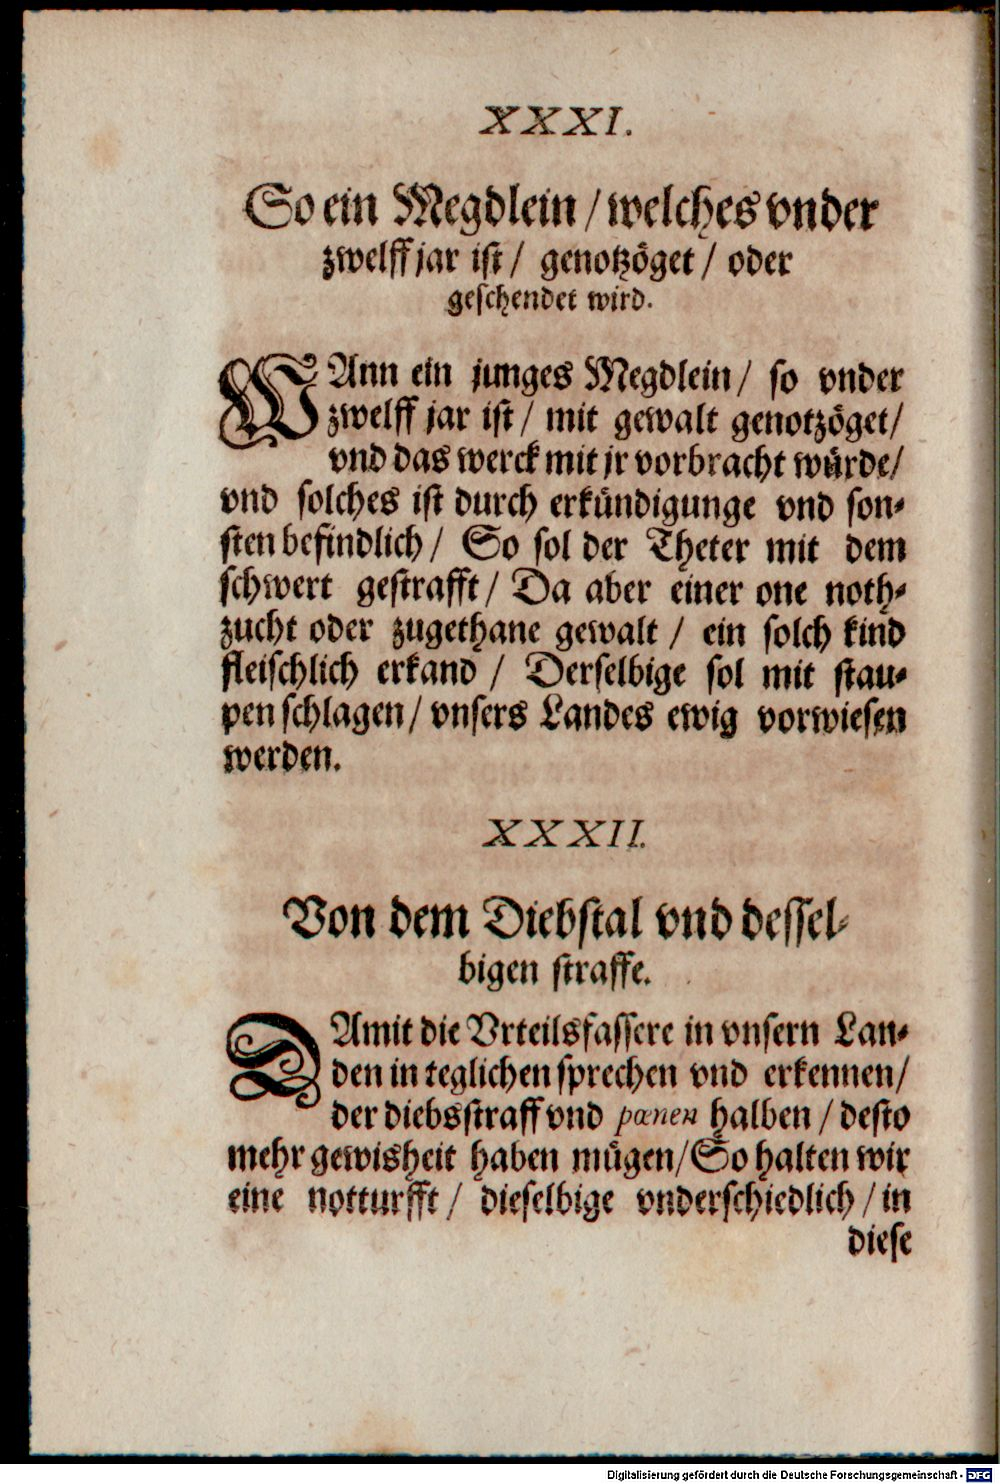 XXXI.
So ein Megdlein / welches vnder
zwelff jar ist / genotzöget / oder
geschendet wird.
WAnn ein junges Megdlein / so vnder
zwelff jar ist / mit gewalt genotzöget /
vnd das werck mit jr vorbracht würde /
vnd solches ist durch erkündigunge vnd son-
sten befindlich / So sol der Theter mit dem
schwert gestrafft / Da aber einer one noth-
zucht oder zugethane gewalt / ein solch kind
fleischlich erkand / Derselbige sol mit stau-
pen schlagen / vnsers Landes ewig vorwiesen
werden.
XXXII.
Von dem Diebstal vnd dessel-
bigen straffe.
DAmit die Vrteilsfassere in vnsern Lan-
den in teglichen sprechen vnd erkennen /
der diebsstraff vnd pœnen halben / desto
mehr gewisheit haben mügen / So halten wir
eine notturfft / dieselbige vnderschiedlich / in
diese
Digitalisierung gefördert durch die Deutsche Forschungsgemeinschaft - DFG